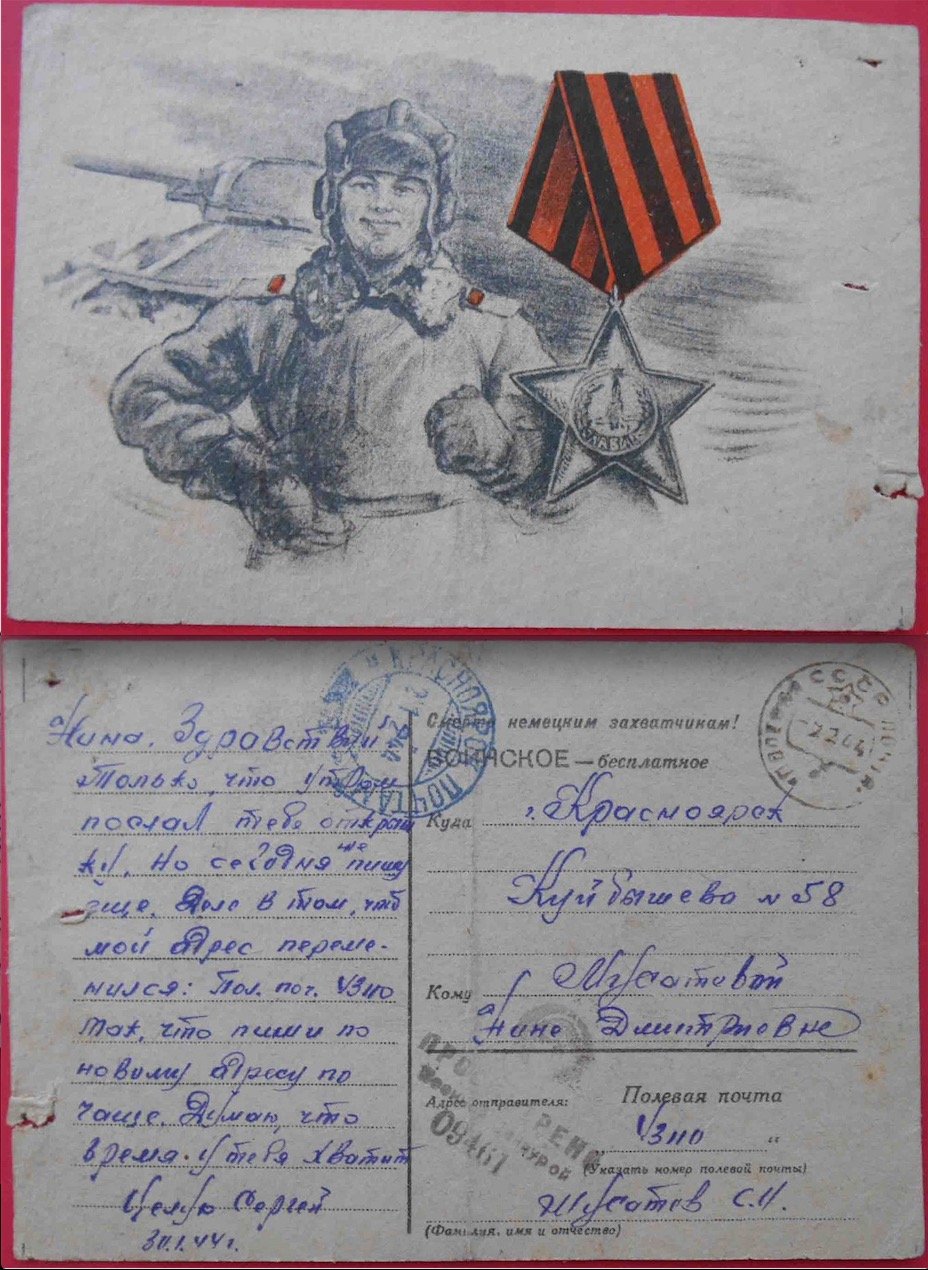 СЛАВА
Нина. Здравствуй
Только, что утром
послал тебе открыт
ку. Но сегодня же пишу
еще. Дело в том, что
мой адрес переме-
нился: Пол. поч.
так, что пиши по
новому адресу по
чаще. Думаю, что
время у тебя хватит
Целую Сергей
30.1.44 г.
КРАСНОЯРСК ПОЧТАМТ
Смерть немецким захватчикам!
ВОИНСКОЕ — бесплатное
СССР
Куда г. Красноярск
Куйбышева № 58
Кому Мусатовой
Нине Дмитриевне
ПРОСМОТРЕНО
Военной Цензурой
09461
Адрес отправителя:
Полевая почта
(Указать номер полевой почты)
Мусатов С.И.
(Фамилия, имя и отчество)